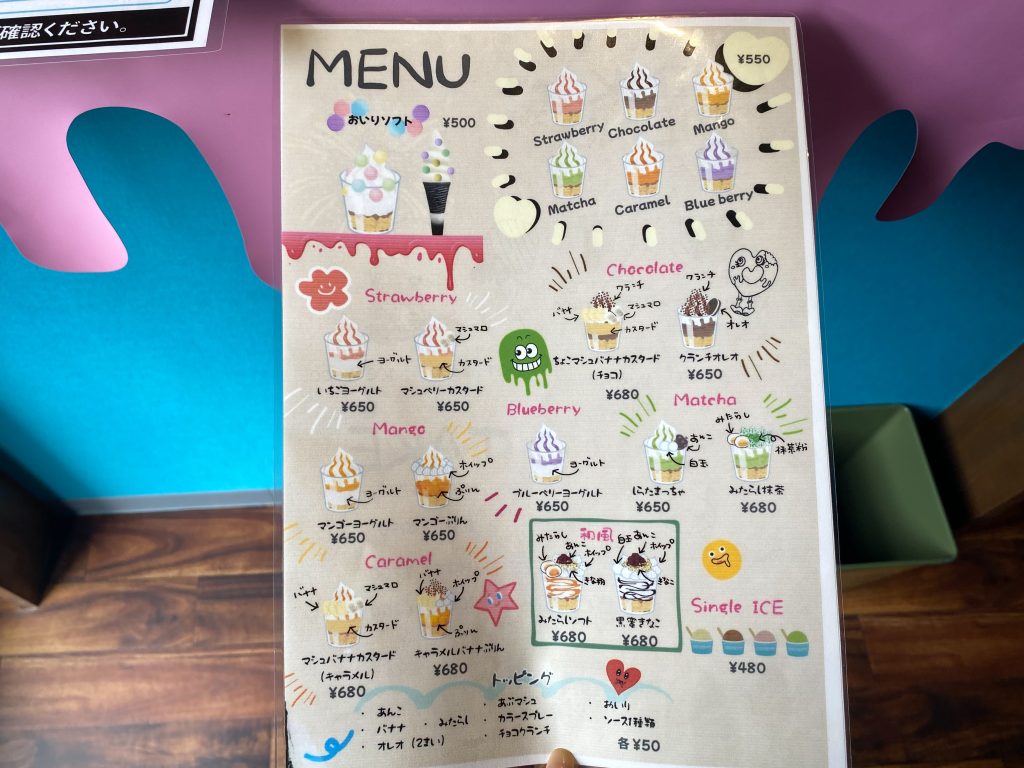 確認ください。
MENU
おいりソフト ¥500
¥550
Strawberry Chocolate Mango
Matcha Caramel Blue berry
Strawberry
ヨーグルト
いちごヨーグルト
¥650
マシュマロ
カスタード
マシュベリーカスタード
¥650
Chocolate
クランチ
バナナ
マシュマロ
カスタード
ちょこマシュバナナカスタード
(チョコ)
¥680
クランチ
オレオ
クランチオレオ
¥650
Mango
ヨーグルト
マンゴーヨーグルト
¥650
ホイップ
ぷりん
マンゴーぷりん
¥650
Blueberry
ヨーグルト
ブルーベリーヨーグルト
¥650
Matcha
あんこ
白玉
しらたまっちゃ
¥650
みたらし
抹茶粉
みたらし抹茶
¥680
Caramel
バナナ
マシュマロ
カスタード
マシュバナナカスタード
(キャラメル)
¥680
バナナ
ホイップ
ぷりん
キャラメルバナナぷりん
¥680
和風
みたらし
あんこ
ホイップ
きな粉
みたらしソフト
¥680
白玉
あんこ
ホイップ
きなこ
黒蜜きなこ
¥680
Single ICE
¥480
トッピング
・あんこ
・バナナ
・オレオ(2まい)
・みたらし
・あぶマシュ
・カラースプレー
・チョコクランチ
・おいり
・ソース1種類
各¥50